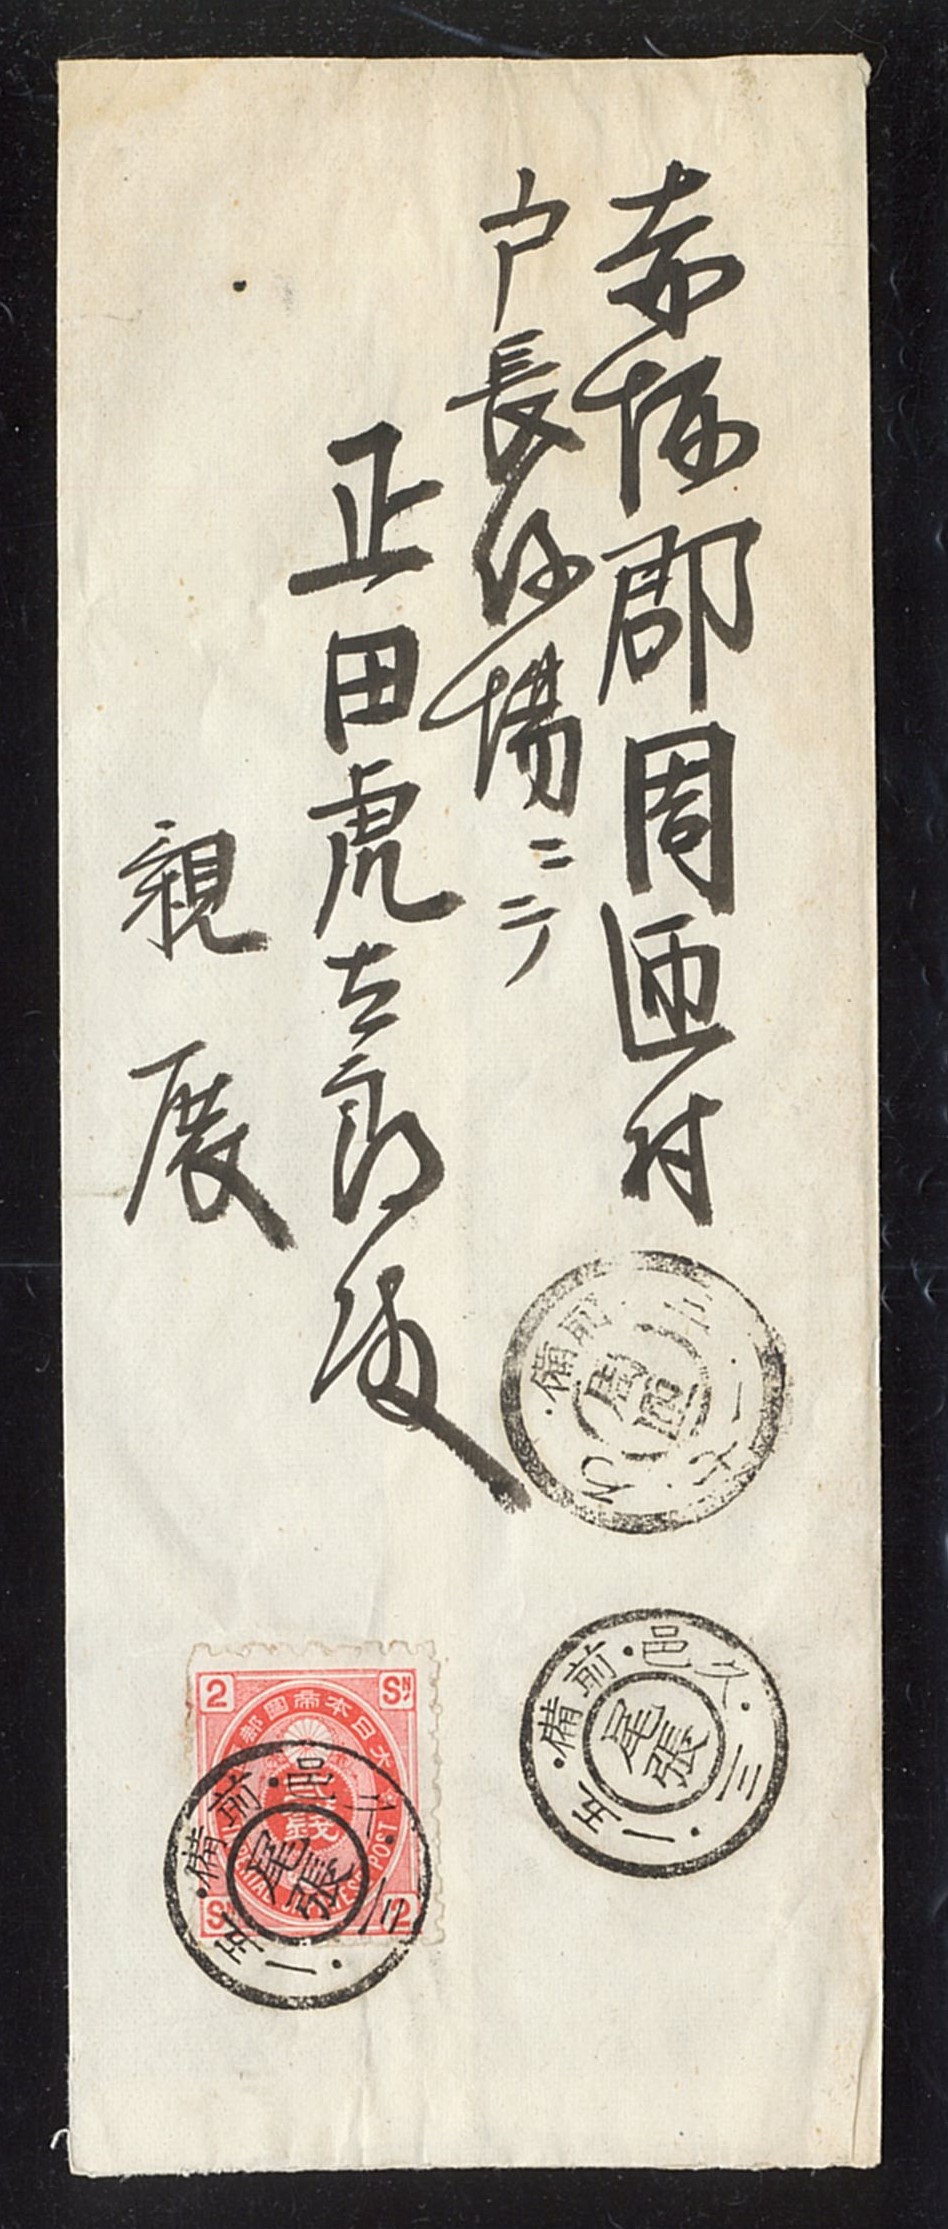 赤坂郡周匝村
戸長役場ニテ
正田虎太郎様
親展
備前
周匝
備前・邑久・三・一・五
尾張
2 SN
大日本帝国郵
弐銭
POST
2
備前・邑久・三・一・五
尾張